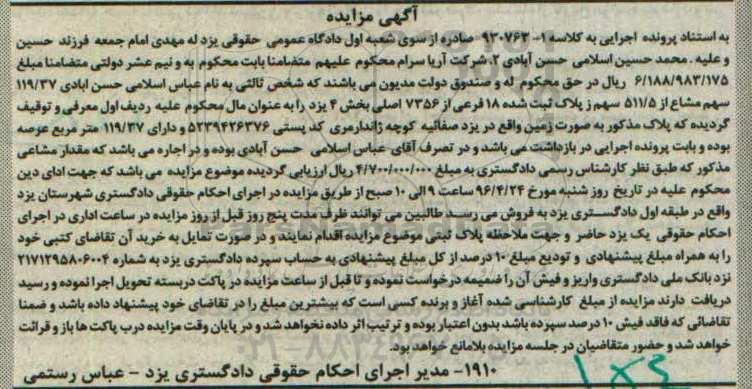 آگهی مزایده
به استناد پرونده اجرایی به کلاسه ۱- ۹۳۰۷۶۳ صادره از سوی شعبه اول دادگاه عمومی حقوقی یزد له مهدی امام جمعه فرزند حسین
و علیه . محمد حسین اسلامی حسن آبادی ۲. شرکت آریا سرام محکوم علیهم متضامنا بابت محکوم به و نیم عشر دولتی متضامنا مبلغ
۶/۱۸۸/۹۸۳/۱۷۵ ریال در حق محکوم له و صندوق دولت مدیون می باشند که شخص ثالثی به نام عباس اسلامی حسن ابادی ۱۱۹/۳۷
سهم مشاع از ۵۱۱/۵ سهم ز پلاک ثبت شده ۱۸ فرعی از ۷۳۵۶ اصلی بخش ۴ یزد را به عنوان مال محکوم علیه ردیف اول معرفی و توقیف
گردیده که پلاک مذکور به صورت زمین واقع در یزد صفائیه کوچه ژاندارمری کد پستی ۵۲۳۹۴۲۶۳۷۶ و دارای ۱۱۹/۳۷ متر مربع عرصه
بوده و بابت پرونده اجرایی در بازداشت می باشد و در تصرف آقای عباس اسلامی حسن آبادی بوده و در اجاره می باشد که مقدار مشاعی
مذکور که طبق نظر کارشناس رسمی دادگستری به مبلغ ۴/۷۰۰/۰۰۰/۰۰۰ ریال ارزیابی گردیده موضوع مزایده می باشد که جهت ادای دین
محکوم علیه در تاریخ روز شنبه مورخ ۹۶/۴/۲۴ ساعت ۹ الی ۱۰ صبح از طریق مزایده در اجرای احکام حقوقی دادگستری شهرستان یزد
واقع در طبقه اول دادگستری یزد به فروش می رسد طالبین می توانند ظرف مدت پنج روز قبل از روز مزایده در ساعت اداری در اجرای
احکام حقوقی یک یزد حاضر و جهت ملاحظه پلاک ثبتی موضوع مزایده اقدام نمایند و در صورت تمایل به خرید آن تقاضای کتبی خود
را به همراه مبلغ پیشنهادی و تودیع مبلغ ۱۰ درصد از کل مبلغ پیشنهادی به حساب سپرده دادگستری یزد به شماره ۲۱۷۱۲۹۵۸۰۶۰۰۴
نزد بانک ملی دادگستری واریز و فیش آن را ضمیمه درخواست نموده و تا قبل از ساعت مزایده در پاکت دربسته تحویل اجرا نموده و رسید
دریافت دارند مزایده از مبلغ کارشناسی شده آغاز و برنده کسی است که بیشترین مبلغ را در تقاضای خود پیشنهاد داده باشد و ضمنا
تقاضائی که فاقد فیش ۱۰ درصد سپرده باشد بدون اعتبار بوده و ترتیب اثر داده نخواهد شد و در پایان وقت مزایده درب پاکت ها باز و قرائت
خواهد شد و حضور متقاضیان در جلسه مزایده بلامانع خواهد بود.
۱۹۱۰- مدیر اجرای احکام حقوقی دادگستری یزد - عباس رستمی